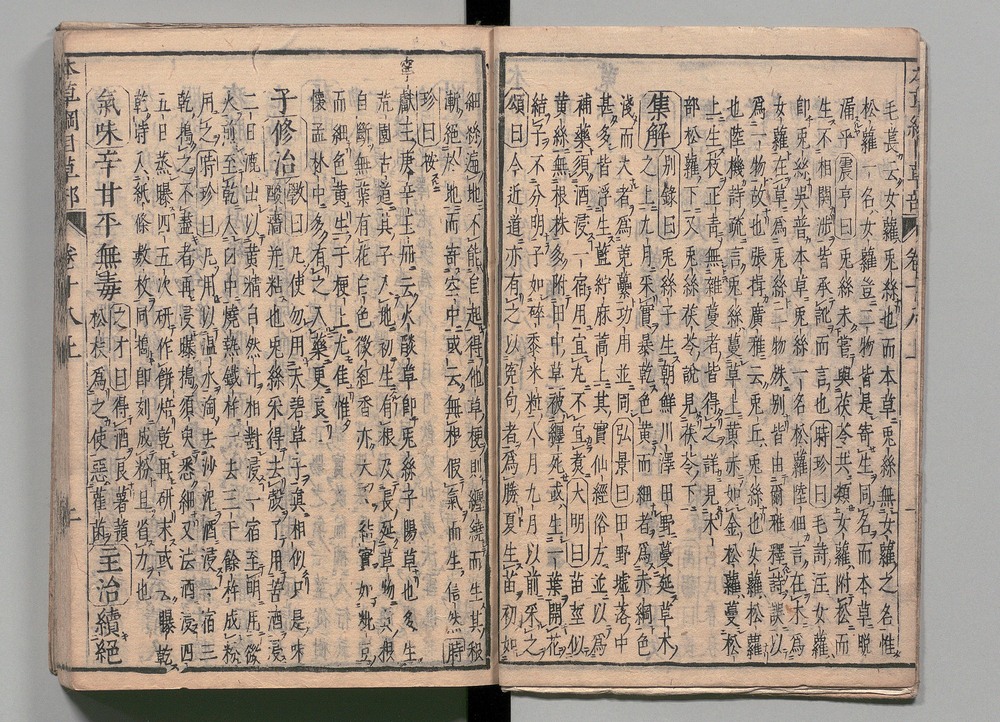 毛萇云女蘿兎絲也而本草兎絲無女蘿之名惟
松蘿一名女蘿豈二物皆是寄生同名而本草脱
漏乎震亨曰兎絲未嘗與茯苓共類女蘿附松而
生不相關涉皆承訛而言也時珍曰毛詩註女蘿
即兎絲吳普本草兎絲一名松蘿陸佃言在木爲
女蘿在草爲兎絲二物殊别皆由爾雅釋詩誤以
爲一物故也張揖廣雅云兎丘兎絲也女蘿松蘿
也陸機詩疏言兎絲蔓草上黄赤如金松蘿蔓松
上生枝正靑無雜蔓者皆得之詳見木
部松蘿下又兎絲茯苓說見茯苓下
集解别錄曰兎絲子生朝鮮川澤田野蔓延草木
之上九月采實暴乾色黄而細者爲赤綱色
淺而大者爲菟虆功用並同弘景曰田野墟落中
甚多皆浮生藍紵麻蒿上其實仙經俗方並以爲
補藥須酒浸一宿用宜丸不宜煑大明曰苗莖似
黄絲無根株多附田中草被纏死或生一葉開花
結子不分明子如碎黍米粒八月九月以前采之
頌曰今近道亦有之以寃句者爲勝夏生苗初如
細絲遍地不能自起得他草梗則纏繞而生其根
漸絶於地而寄空中或云無根假氣而生信然時
珍曰按
寧獻王庚辛玉冊云火燄草即兎絲子陽草也多生
荒園古道其子入地初生有根及長延草物其根
自斷無葉有花白色微紅香亦襲人結實如秕豆
而細色黄生于梗上尤佳惟
懷孟林中多有之入藥更良
子修治斆曰凡使勿用天碧草子真相似只是味
酸澀并粘也兎絲采得去殻了用苦酒浸
二日漉出以黄精自然汁相對浸一宿至明用微
火煎至乾入臼中燒熱鐵杵一去三千餘杵成粉
用之時珍曰凡用以温水淘去沙泥酒浸一宿三
乾搗之不盡者再浸曝搗須臾悉細又法酒浸四
五日蒸曝四五次研作餅焙乾再研末或云曝乾
時入紙條數枚同搗即刻成粉且省力也
氣味辛甘平無毒之才曰得酒良薯蕷松枝爲之使惡雚菌主治續絶
本草綱目草部 卷十八上